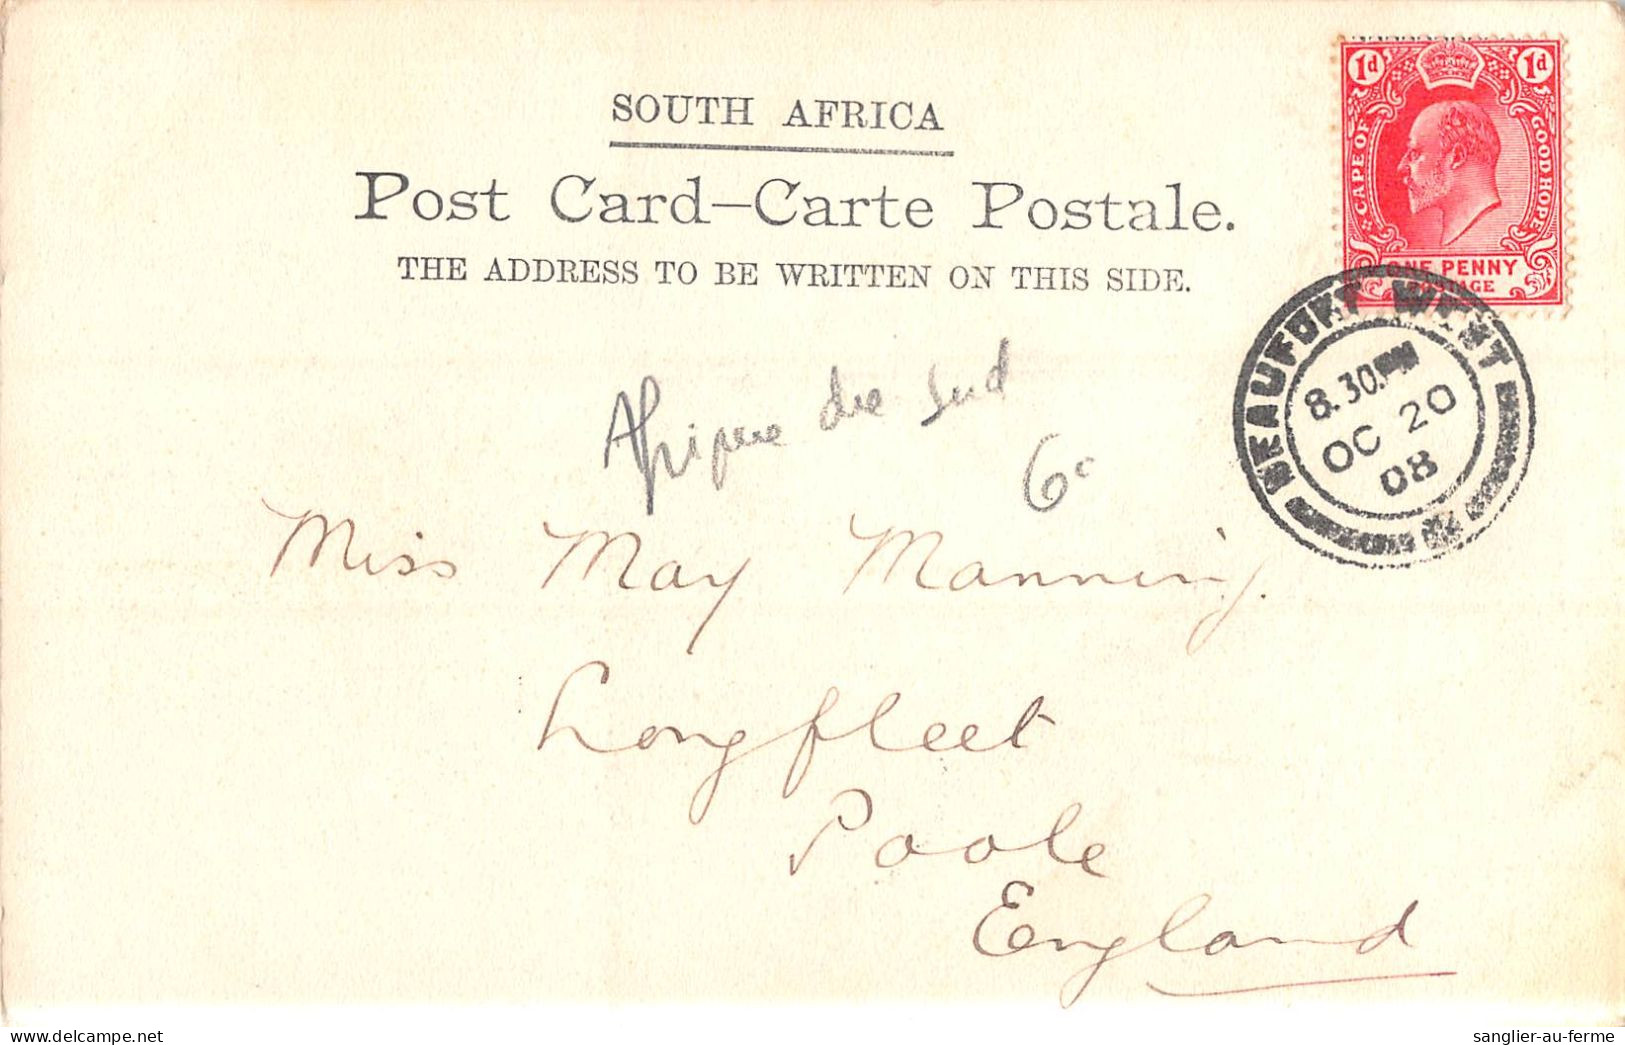 SOUTH AFRICA
Post Card—Carte Postale.
THE ADDRESS TO BE WRITTEN ON THIS SIDE.
1d 1d
CAPE OF GOOD HOPE
ONE PENNY
POSTAGE
BEAUFORT WEST
8.30.PM
OC 20
08
Afrique du Sud
6c
Miss May Manning.
Longfleet
Poole
England
www.delcampe.net
sanglier-au-ferme